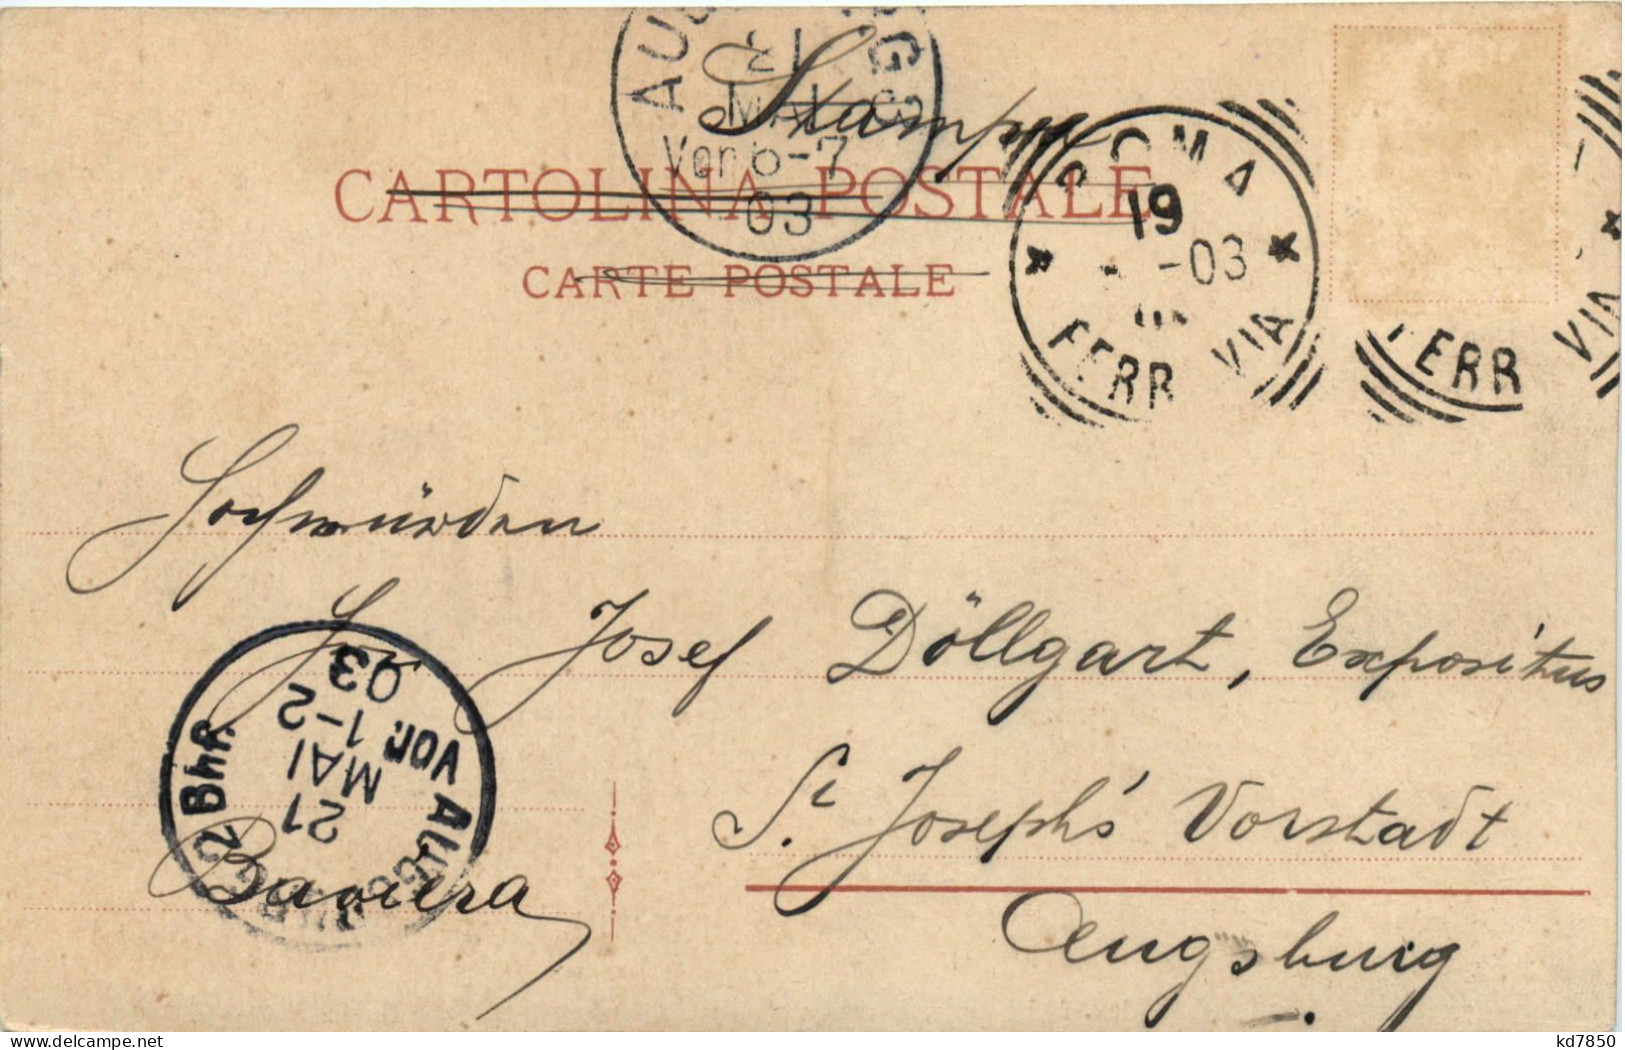 AUGSBURG
21
MAI
Vor 6-7
03
Stampe
CARTOLINA POSTALE
CARTE POSTALE
ROMA
19
-03
FERROVIA
FERR VIA
Hochwürden
Hr. Josef Döllgart, Expositus
St. Joseph's Vorstadt
Augsburg
Baviera
AUGSBURG 2 Bhf.
21
MAI
Vor. 1-2
03
kd7850